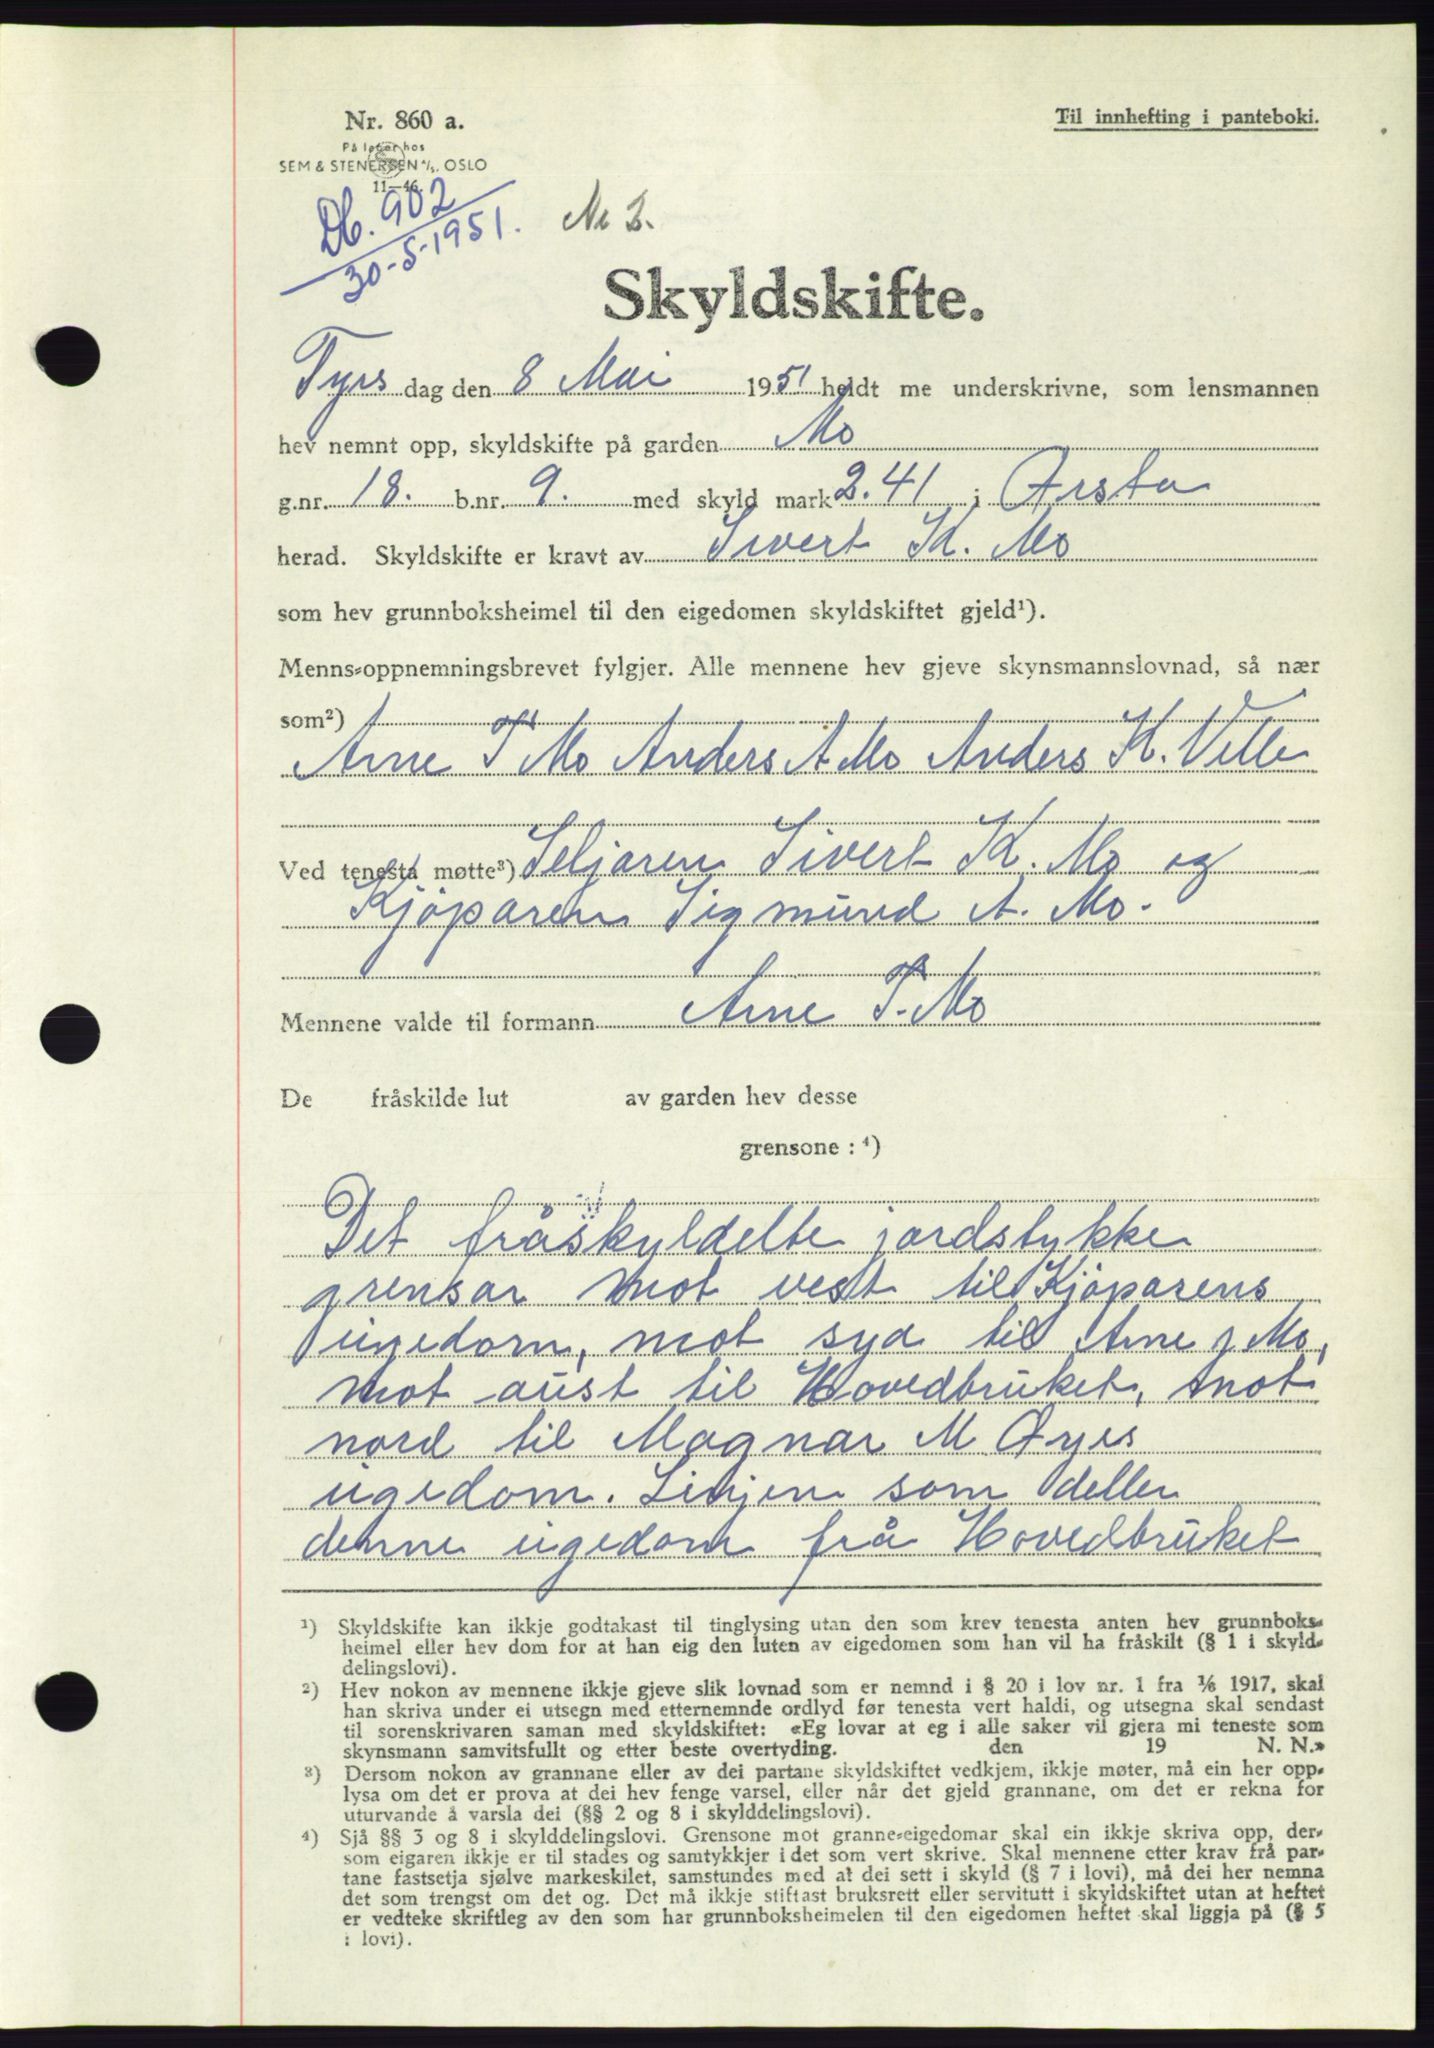 Nr. 860 a.
Til innhefting i panteboki.
På lager hos
SEM & STENERSEN A/S, OSLO
11—46.
Db. 902
30-5-1951.
Nr 2.
Skyldskifte.
Tyrs dag den 8 Mai 1951 heldt me underskrivne, som lensmannen
hev nemnt opp, skyldskifte på garden Mo
g.nr. 18. b.nr. 9. med skyld mark 2.41 i Ørsta
herad. Skyldskifte er kravt av Sivert K. Mo
som hev grunnboksheimel til den eigedomen skyldskiftet gjeld¹).
Menns-oppnemningsbrevet fylgjer. Alle mennene hev gjeve skynsmannslovnad, så nær
som²)
Arne T Mo Anders A Mo Anders K. Velle
Ved tenesta møtte³) Seljaren Sivert K. Mo og
Kjöparen Sigmund A. Mo.
Mennene valde til formann Arne T. Mo
De fråskilde lut av garden hev desse
grensone : ⁴)
Det fråskyldelte jordstykke
grensar mot vest til Kjöparens
eigedom, mot syd til Arne J Mo,
mot aust til Hovedbruket, mot
nord til Magnar M Øyes
eigedom. Linjen som deller
denne eigedom frå Hovedbruket
¹) Skyldskifte kan ikkje godtakast til tinglysing utan den som krev tenesta anten hev grunnboks-
heimel eller hev dom for at han eig den luten av eigedomen som han vil ha fråskilt (§ 1 i skyld-
delingslovi).
²) Hev nokon av mennene ikkje gjeve slik lovnad som er nemnd i § 20 i lov nr. 1 fra 1/6 1917, skal
han skriva under ei utsegn med etternemnde ordlyd før tenesta vert haldi, og utsegna skal sendast
til sorenskrivaren saman med skyldskiftet: «Eg lovar at eg i alle saker vil gjera mi teneste som
skynsmann samvitsfullt og etter beste overtyding. den 19 N. N.»
³) Dersom nokon av grannane eller av dei partane skyldskiftet vedkjem, ikkje møter, må ein her opp-
lysa om det er prova at dei hev fenge varsel, eller når det gjeld grannane, om det er rekna for
uturvande å varsla dei (§§ 2 og 8 i skylddelingslovi).
⁴) Sjå §§ 3 og 8 i skylddelingslovi. Grensone mot granne-eigedomar skal ein ikkje skriva opp, der-
som eigaren ikkje er til stades og samtykkjer i det som vert skrive. Skal mennene etter krav frå par-
tane fastsetja sjølve markeskilet, samstundes med at dei sett i skyld (§ 7 i lovi), må dei her nemna
det som trengst om det og. Det må ikkje stiftast bruksrett eller servitutt i skyldskiftet utan at heftet
er vedteke skriftleg av den som har grunnboksheimelen til den eigedomen heftet skal liggja på (§ 5
i lovi).